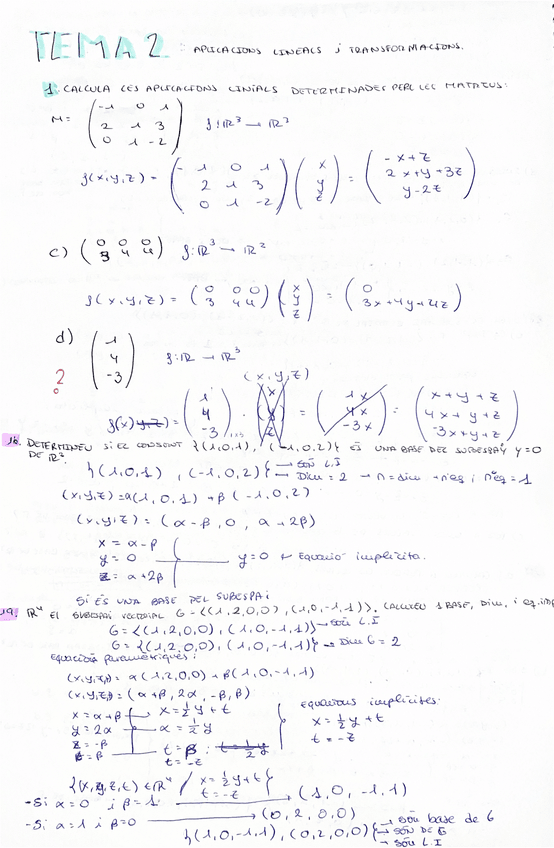 TEMA 2 : APLICACIONS LINEALS i TRANSFORMACIONS.
1. CALCULA LES APLICACIONS LINIALS DETERMINADES PER LES MATRIUS:
M= ( -1 0 1
2 1 3
0 1 -2 ) f: ℝ³ → ℝ³
f(x,y,z) = ( -1 0 1
2 1 3
0 1 -2 ) ( x
y
z ) = ( -x+z
2x+y+3z
y-2z )
c) ( 0 0 0
3 4 4 ) f: ℝ³ → ℝ²
f(x,y,z) = ( 0 0 0
3 4 4 ) ( x
y
z ) = ( 0
3x+4y+4z )
d) ( 1
4
-3 ) f: ℝ → ℝ³
?
(x,y,z)
f(x) = ( 1
4
-3 ) · ( x
y
z ) = ( 1x
4x
-3x ) = ( x+y+z
4x+y+z
-3x+y+z )
16. DETERMINEU SI EL CONJUNT {(1,0,1), (-1,0,2)} ÉS UNA BASE DEL SUBESPAI y=0
DE ℝ³.
{(1,0,1), (-1,0,2)} → SÓN L.I
→ Dim = 2 → n=dim + nºeq ; nºeq = 1
(x,y,z) = α(1,0,1) + β(-1,0,2)
(x,y,z) = (α-β, 0, α+2β)
x = α-β
y = 0 y=0 ← Equació implícita.
z = α+2β
SÍ ÉS UNA BASE DEL SUBESPAI
19. ℝ⁴ EL SUBESPAI VECTORIAL G = <(1,2,0,0), (1,0,-1,1)>. CALCULEU 1 BASE, DIM, i eq.imp
G = <(1,2,0,0), (1,0,-1,1)> → SÓN L.I
G = {(1,2,0,0), (1,0,-1,1)} → Dim G = 2
Equacions paramètriques:
(x,y,z,t) = α(1,2,0,0) + β(1,0,-1,1)
(x,y,z,t) = (α+β, 2α, -β, β)
x = α+β x = ½y+t
y = 2α α = ½y
z = -β
t = β t = β
t = -z
equacions implícites:
x = ½y+t
t = -z
{(x,y,z,t) ∈ ℝ⁴ / x = ½y+t
t = -z }
-Si α=0 i β=1 → (1,0,-1,1)
-Si α=1 i β=0 → (0,2,0,0)
{(1,0,-1,1), (0,2,0,0)} → SÓN base de G
→ SÓN DE G
→ SÓN L.I